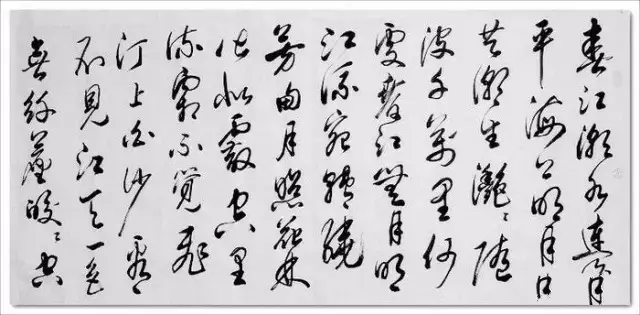 春江潮水連海
平海上明月
共潮生灩々隨
波千萬里何
處春江無月明
江流宛轉繞
芳甸月照花林
皆似霰空里
流霜不覺飛
汀上白沙看
不見江天一色
無纖塵皎々空